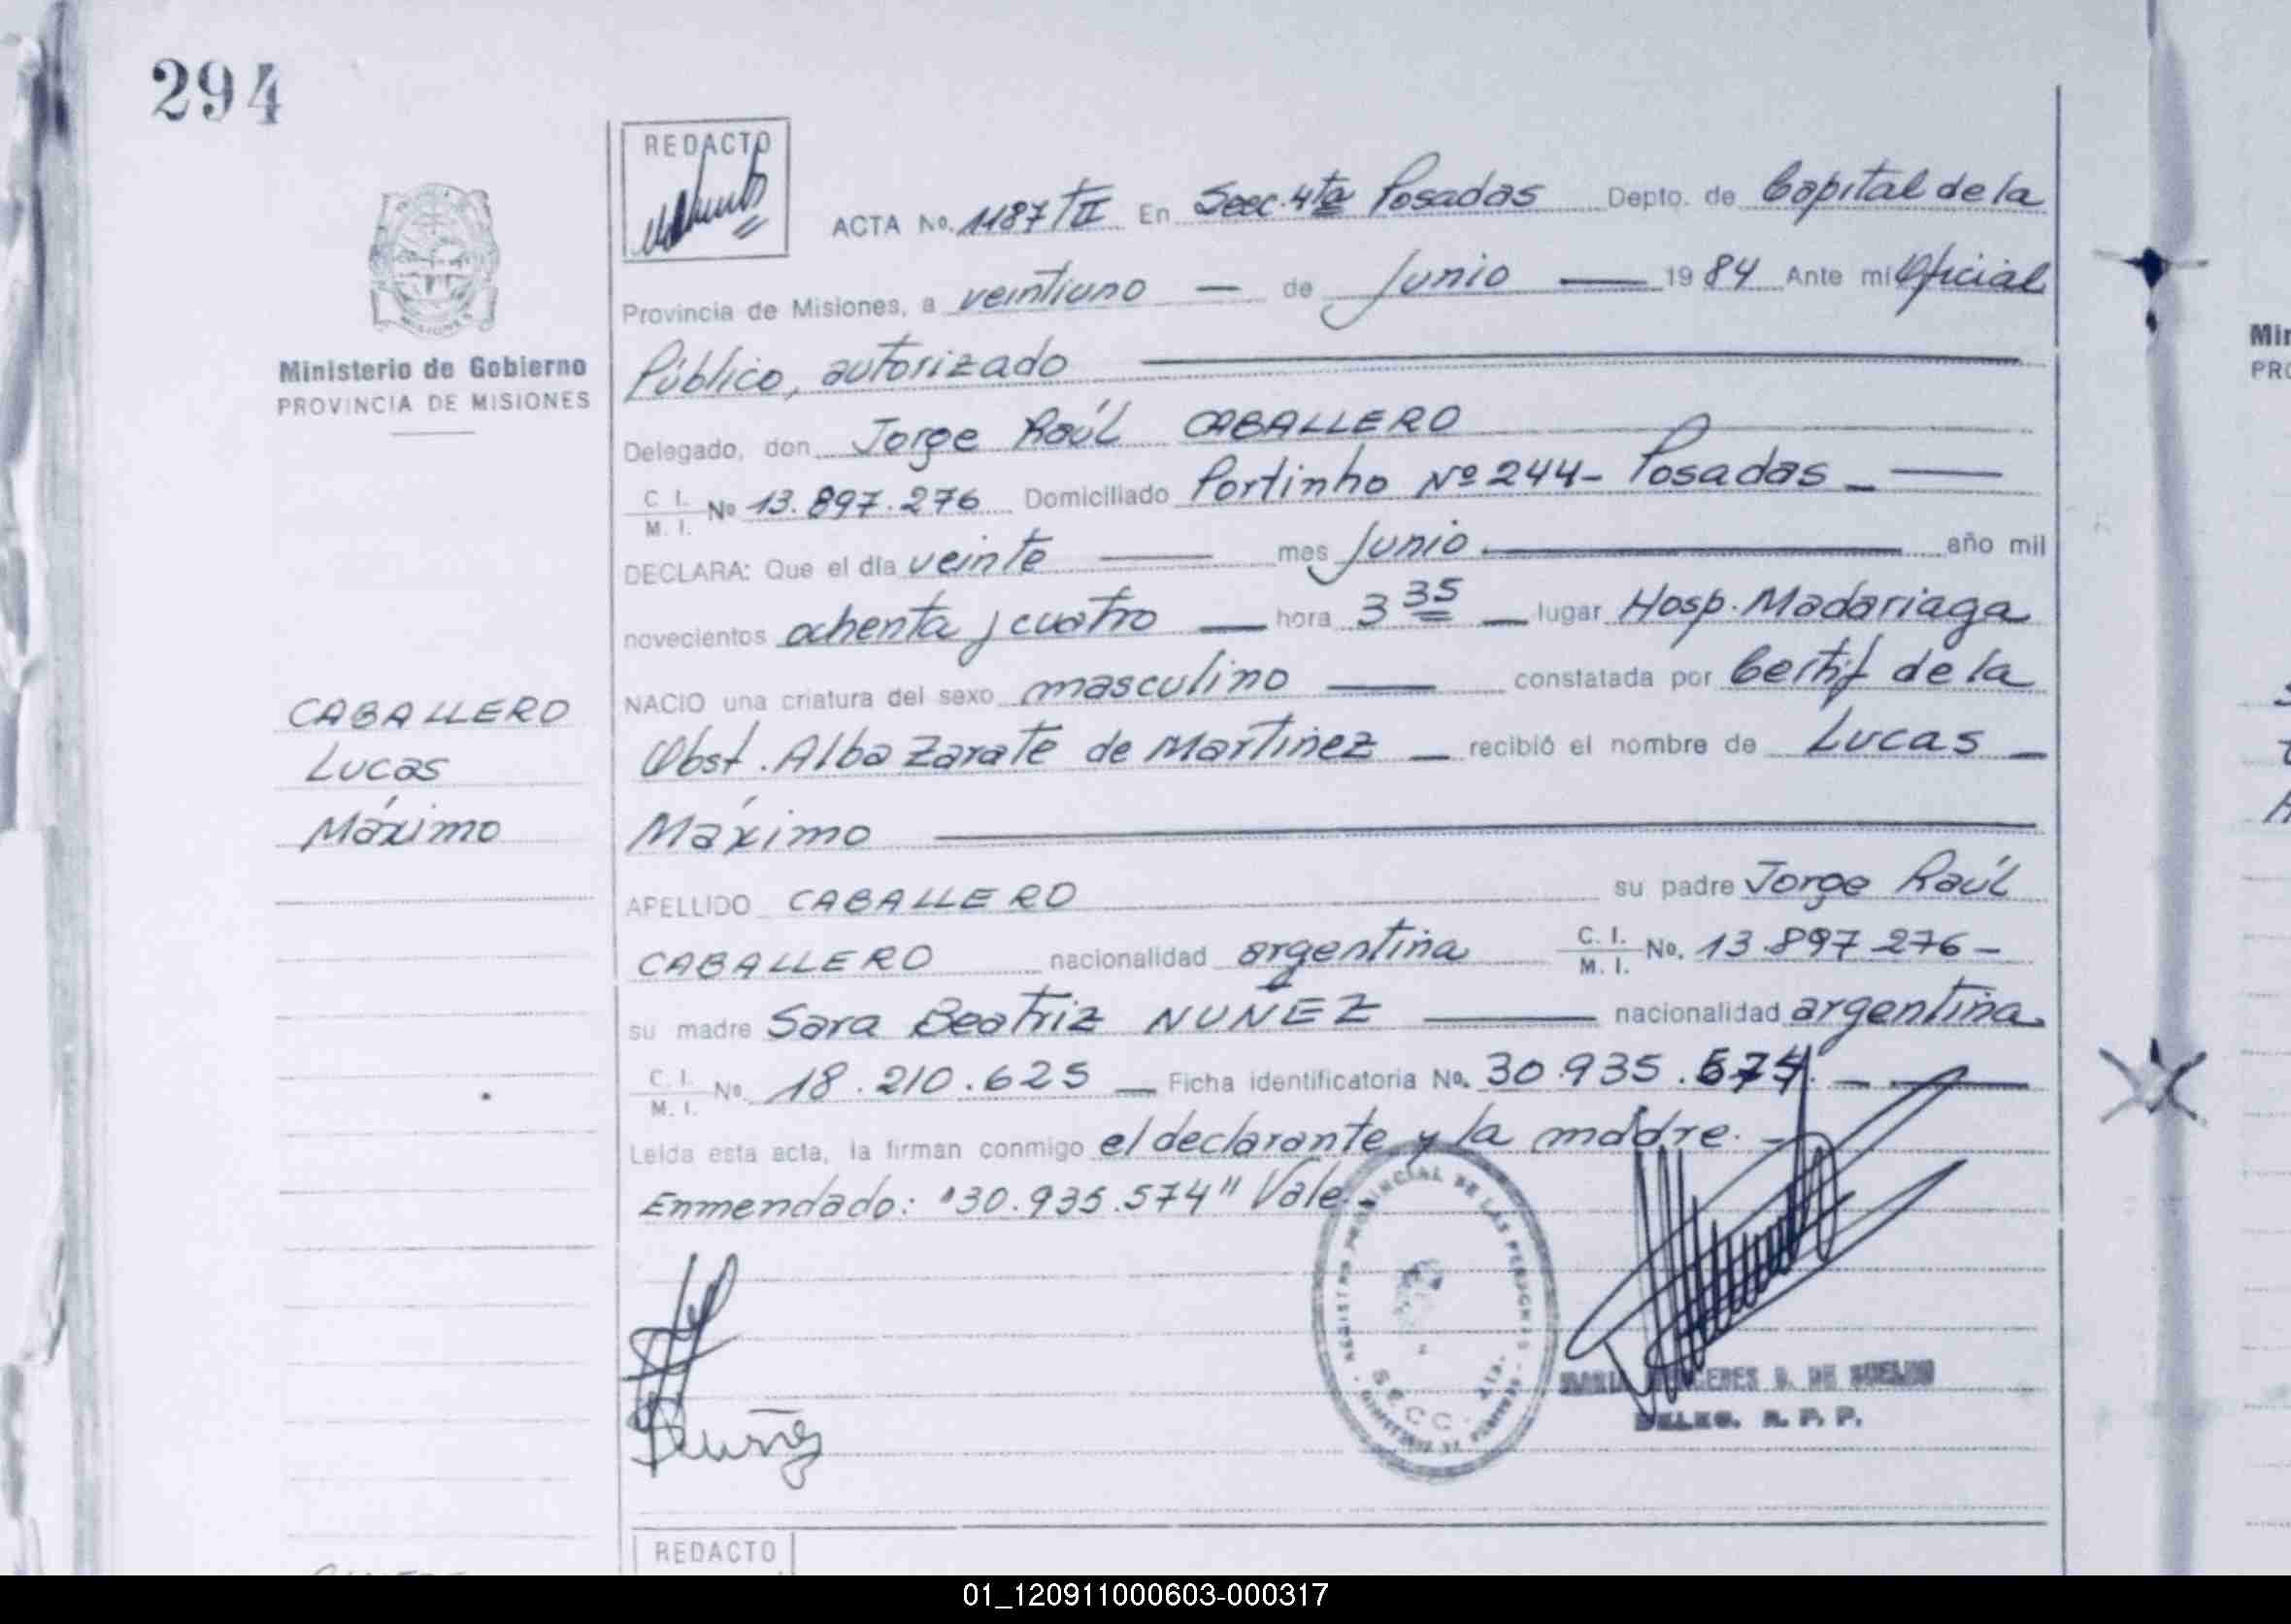 294
REDACTO
ACTA No. 1187 T II En Secc. 4ta Posadas Depto. de Capital de la
Provincia de Misiones, a veintiuno — de Junio — 1984 Ante mi Oficial
Público, autorizado
Delegado, don Jorge Raúl CABALLERO
C. I. / M. I. No 13.897.276 Domiciliado Portinho Nº 244- Posadas —
DECLARA: Que el día veinte — mes Junio — año mil
novecientos ochenta y cuatro — hora 3 35 — lugar Hosp. Madariaga
NACIO una criatura del sexo masculino — constatada por Certif de la
Obst. Alba Zarate de Martinez — recibió el nombre de Lucas —
Máximo
APELLIDO CABALLERO su padre Jorge Raúl
CABALLERO nacionalidad argentina C. I. / M. I. No. 13.897.276 —
su madre Sara Beatriz NUÑEZ — nacionalidad argentina
C. I. / M. I. No. 18.210.625 — Ficha identificatoria No. 30.935.574 —
Leída esta acta, la firman conmigo el declarante y la madre. -
Enmendado: "30.935.574" Vale.
Ministerio de Gobierno
PROVINCIA DE MISIONES
CABALLERO
Lucas
Máximo
MISIONES
REGISTRO PROVINCIAL DE LAS PERSONAS
SECC. 4ta.
Nuñez
DELEG. R. P. P.
REDACTO
Min
PRO
01_120911000603-000317